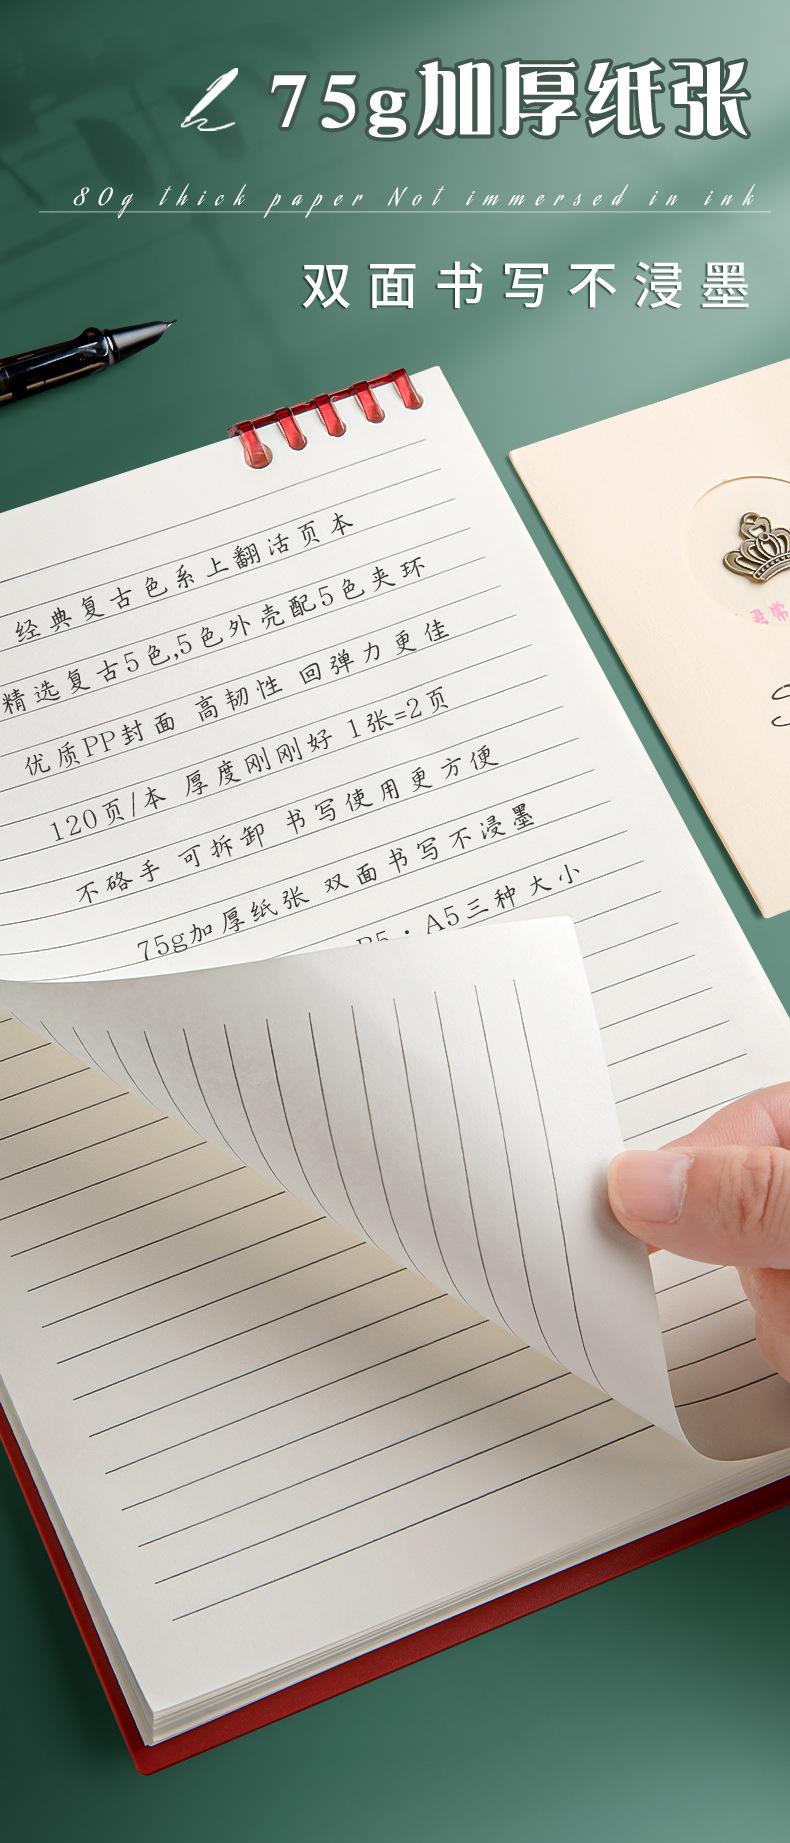 75g加厚纸张
80g thick paper Not immersed in ink
双面书写不浸墨
经典复古色系上翻活页本
精选复古5色,5色外壳配5色夹环
优质PP封面 高韧性 回弹力更佳
120页/本 厚度刚刚好 1张=2页
不硌手 可拆卸 书写使用更方便
75g加厚纸张 双面书写不浸墨
B5·A5三种大小